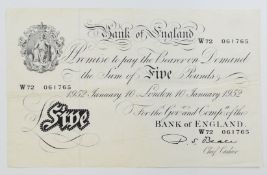 Bank of England
W72 061765
Promise to pay the Bearer on Demand
the Sum of Five Pounds
1952 January 10 London 10 January 1952
W72 061765
For the Govr and Compa of the
BANK OF ENGLAND
W72 061765
Five
P. S. Beale
Chief Cashier